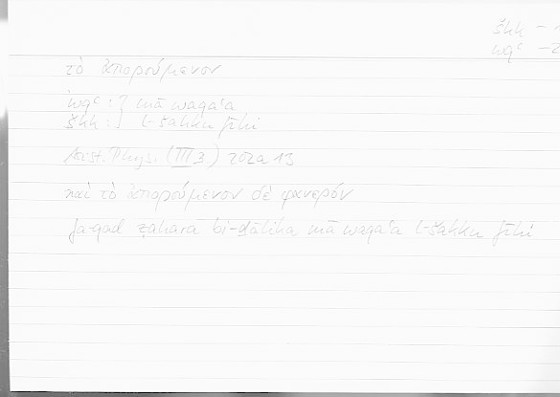 škk –
wqʿ – 2
τὸ ἀπορούμενον
wqʿ : } mā waqaʿa
škk : } l-šakku fīhi
Arist. Phys. (III 3) 202a 13
καὶ τὸ ἀπορούμενον δὲ φανερόν
fa-qad ẓahara bi-ḏālika mā waqaʿa l-šakku fīhi